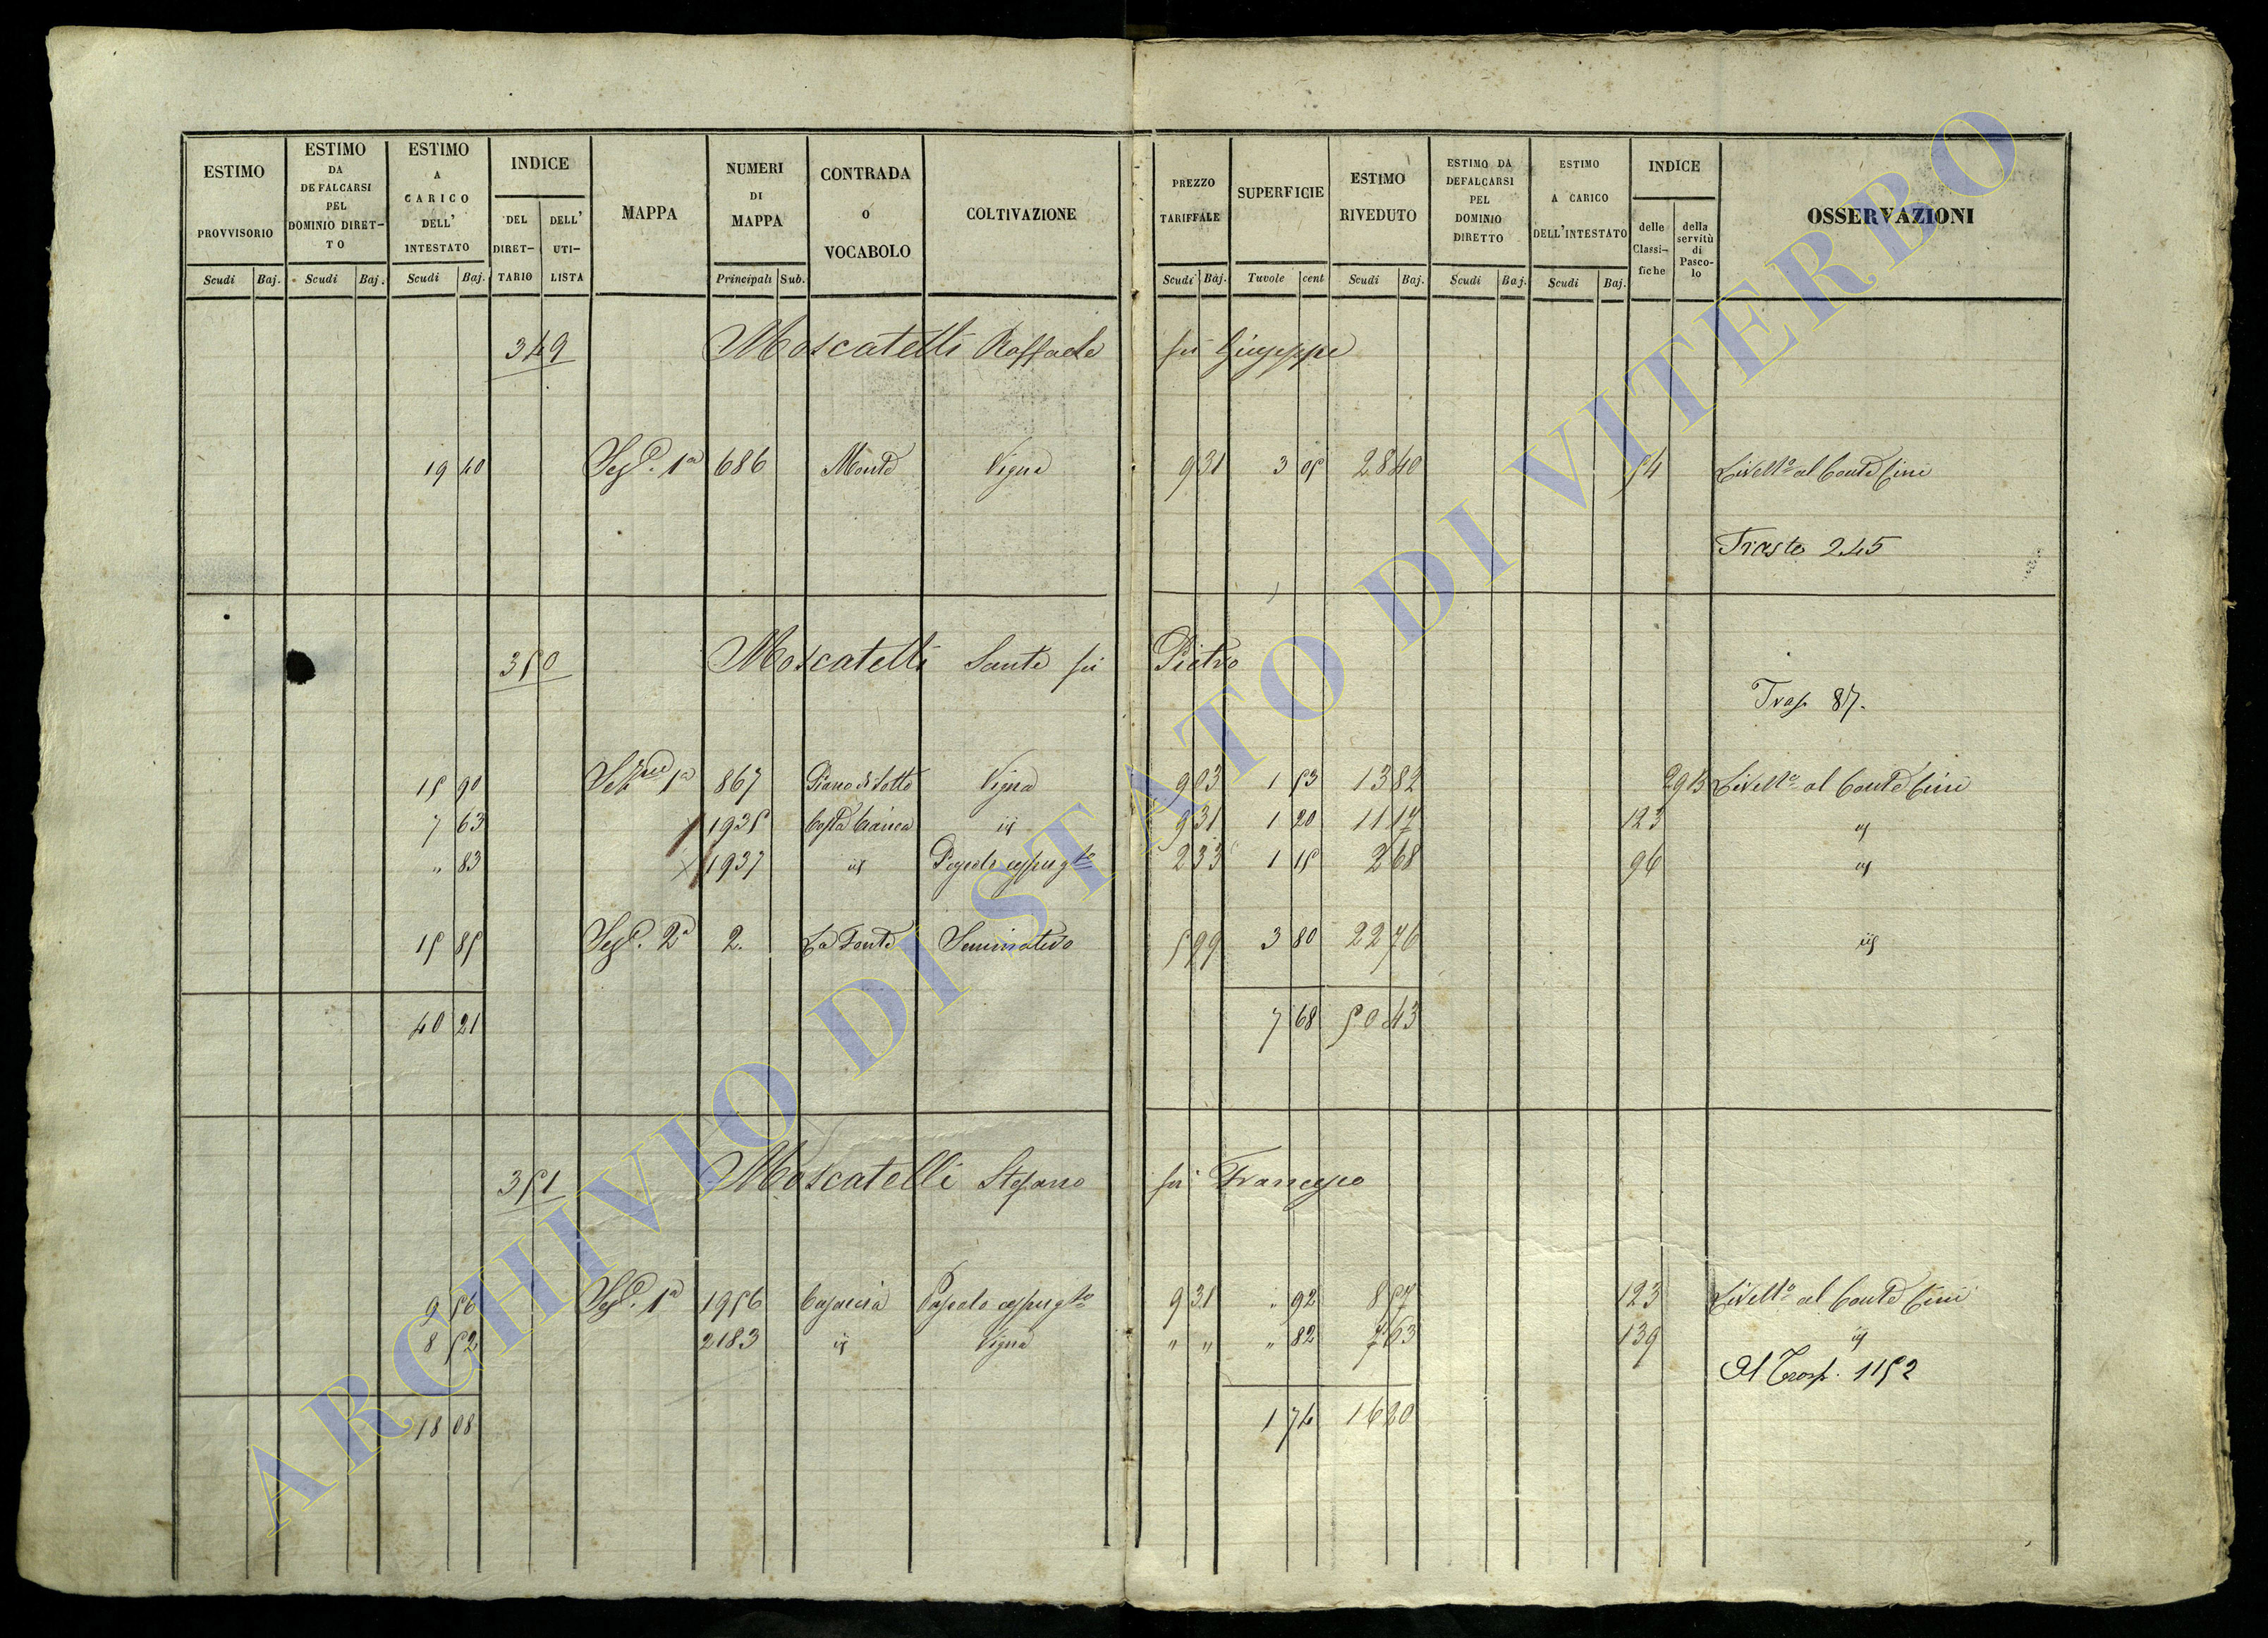 ESTIMO PROVVISORIO Scudi Baj.
ESTIMO DA DEFALCARSI PEL DOMINIO DIRETTO Scudi Baj.
ESTIMO A CARICO DELL' INTESTATO Scudi Baj.
INDICE DEL DIRETTARIO DELL' UTILISTA
MAPPA
NUMERI DI MAPPA Principali Sub.
CONTRADA O VOCABOLO
COLTIVAZIONE
PREZZO TARIFFALE Scudi Baj.
SUPERFICIE Tavole cent
ESTIMO RIVEDUTO Scudi Baj.
ESTIMO DA DEFALCARSI PEL DOMINIO DIRETTO Scudi Baj.
ESTIMO A CARICO DELL'INTESTATO Scudi Baj.
INDICE delle Classifiche della servitù di Pascolo
OSSERVAZIONI
349 Moscatelli Raffaele fu Giuseppe
19 40 Sez.e 1a 686 Monte Vigna 9 31 3 05 28 40 54 Livell.o al Conte Cini
245
350 Moscatelli Sante fu Pietro
Trasp. 87.
15 90 Sez.ne 1a 867 Piano di Sotto Vigna 9 03 1 53 13 82 Livell.o al Conte Cini
7 63 1935 Costa id 9 31 1 20 11 17 123 id
" 83 1937 id Pascolo cespug.to 2 33 1 15 2 68 96 id
15 85 Sez.e 2a 2. La Fonte Seminativo 5 99 3 80 22 76 id
40 21 7 68 50 43
351 Moscatelli Stefano fu Francesco
9 56 Sez.e 1a 1956 Casaccia Pascolo cespug.to 9 31 " 92 8 57 123 Livell.o al Conte Cini
8 52 2183 id Vigna " " " 82 7 63 139 id
Al Trasp. 1152
18 08 1 74 16 20
ARCHIVIO DI STATO DI VITERBO